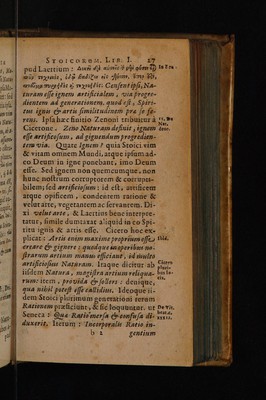 STOICORVM. LIB. I. 27
pud Laërtium: Δοκεῖ δὲ αὐτοῖς τ
In Zen.
Censent ipsi, Na-
turam esse ignem artificialem, via progre-
dientem ad generationem. quod est, Spiri-
tus ignis & artis similitudinem præ se fe-
rens. Ipsa hæc finitio Zenoni tribuitur à
Cicerone. Zeno Naturam definit, ignem
esse artificiosum, ad gignendum progredien-
tem via. Quare Ignem? quia Stoici vim
& vitam omnem Mundi, atque ipsum ad-
eo Deum in igne ponebant, imo Deum
esse. Sed ignem non quemcumque, non
hunc nostrum corruptorem & corrupta-
bilem; sed artificiosum: id est, artificem
atque opificem, condentem ratione &
volentem, vegetantem ac servantem. Di-
xi velut arte, & Laërtius bene interpre-
tatur, simile dumtaxat aliquid in eo Spi-
ritu ignis & artis esse. Cicero hoc ex-
plicat: Artis enim maxime proprium esse,
creare & gignere: quodque in operibus no-
strarum artium manus efficiant, id multo
artificiosius Naturam. Itaque dicitur ab
iisdem Natura, magistra artium reliqua-
rum: item, provida & sollers: denique,
qua nihil potest esse callidius. Ideoque ii-
dem Stoici plurimum generationi rerum
Rationem præficiunt, & sic loquuntur. ut
Seneca: Qua Ratio mersa & confusa di-
duxerit. Iterum: Incorporalis Ratio in-
b 2 gentium